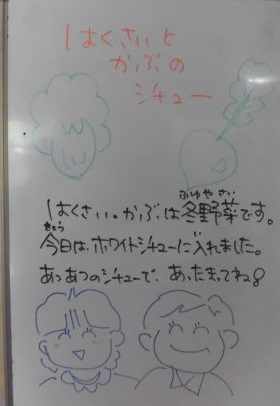 はくさいと
かぶの
シチュー
はくさい。かぶは冬野菜です。
ふゆやさい
今日は、ホワイトシチューに入れました。
きょう
あつあつのシチューで、あったまってね!